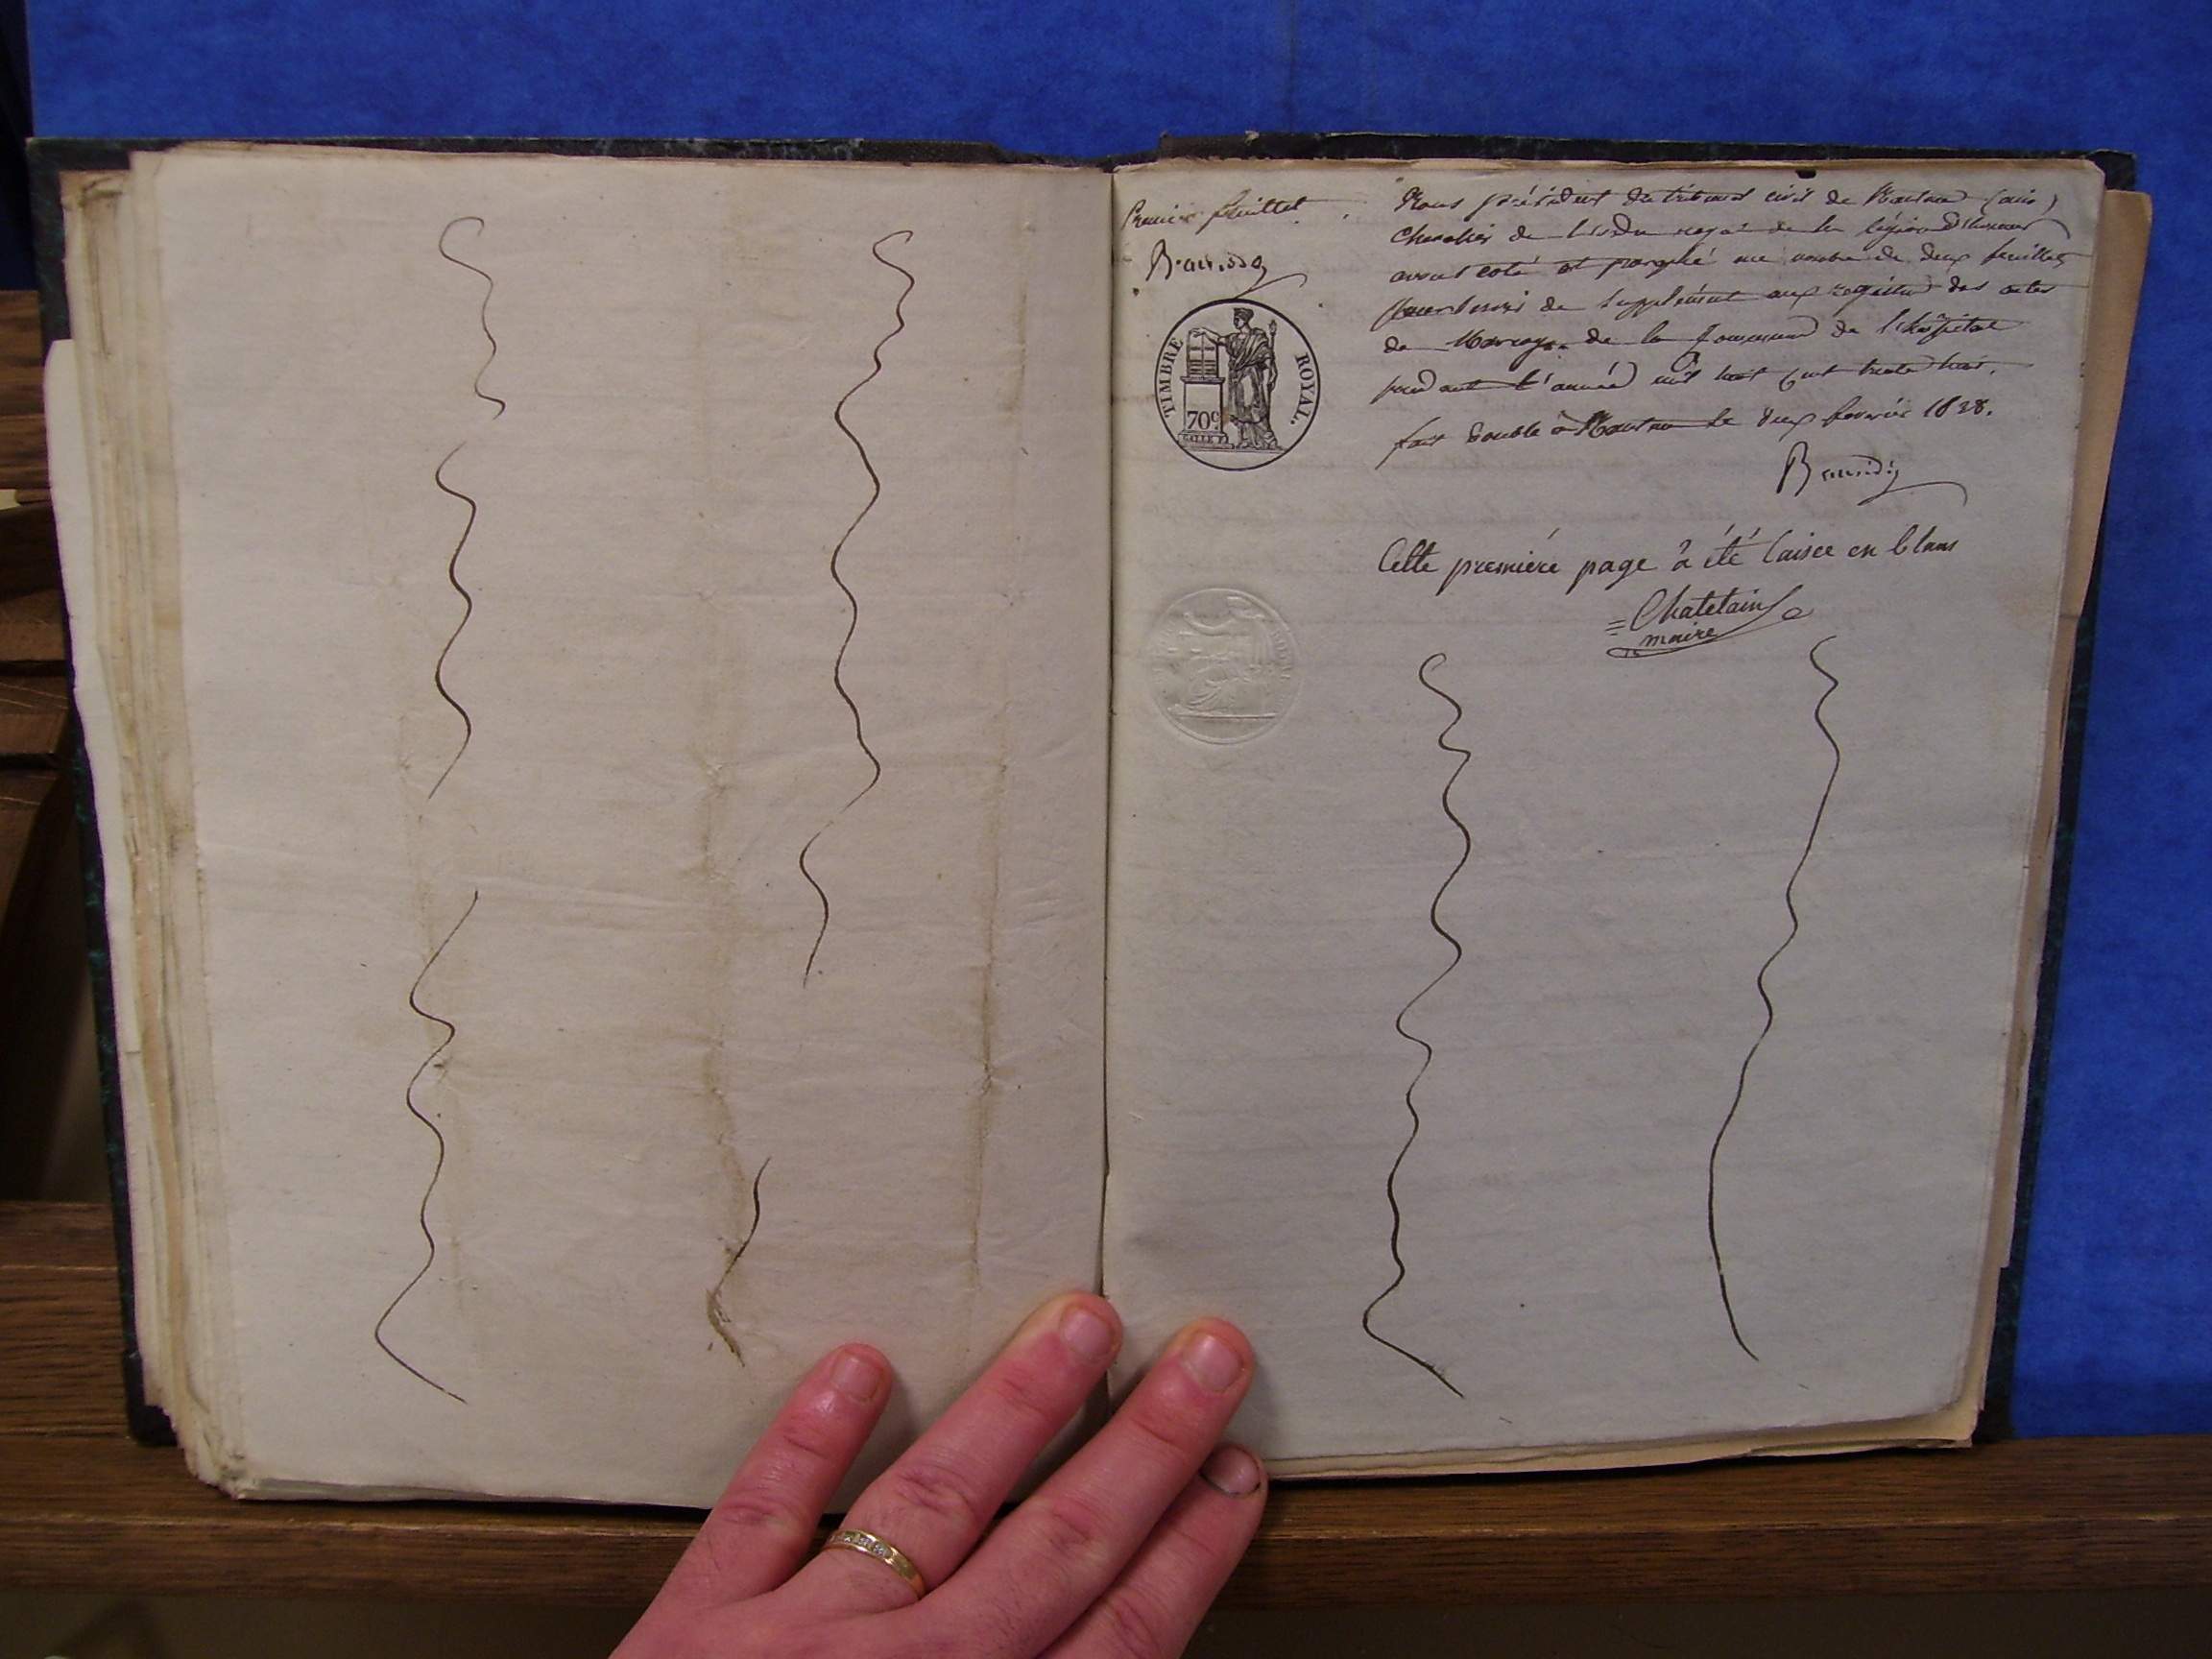 Premier feuillet.
TIMBRE ROYAL.
70c
Nous président du tribunal civil de Nantua (ain)
chevalier de l'ordre royal de la légion d'honneur
avons coté et paraphé une nombre de deux feuillets
pour servir de supplément aux registres des actes
de Mariage de la Commune de l'hôpital
pendant l'année mil huit cent trente huit.
fait double à Nantua le deux fevrier 1838.
Cette premiere page à été laisee en blans
Chatelain
maire